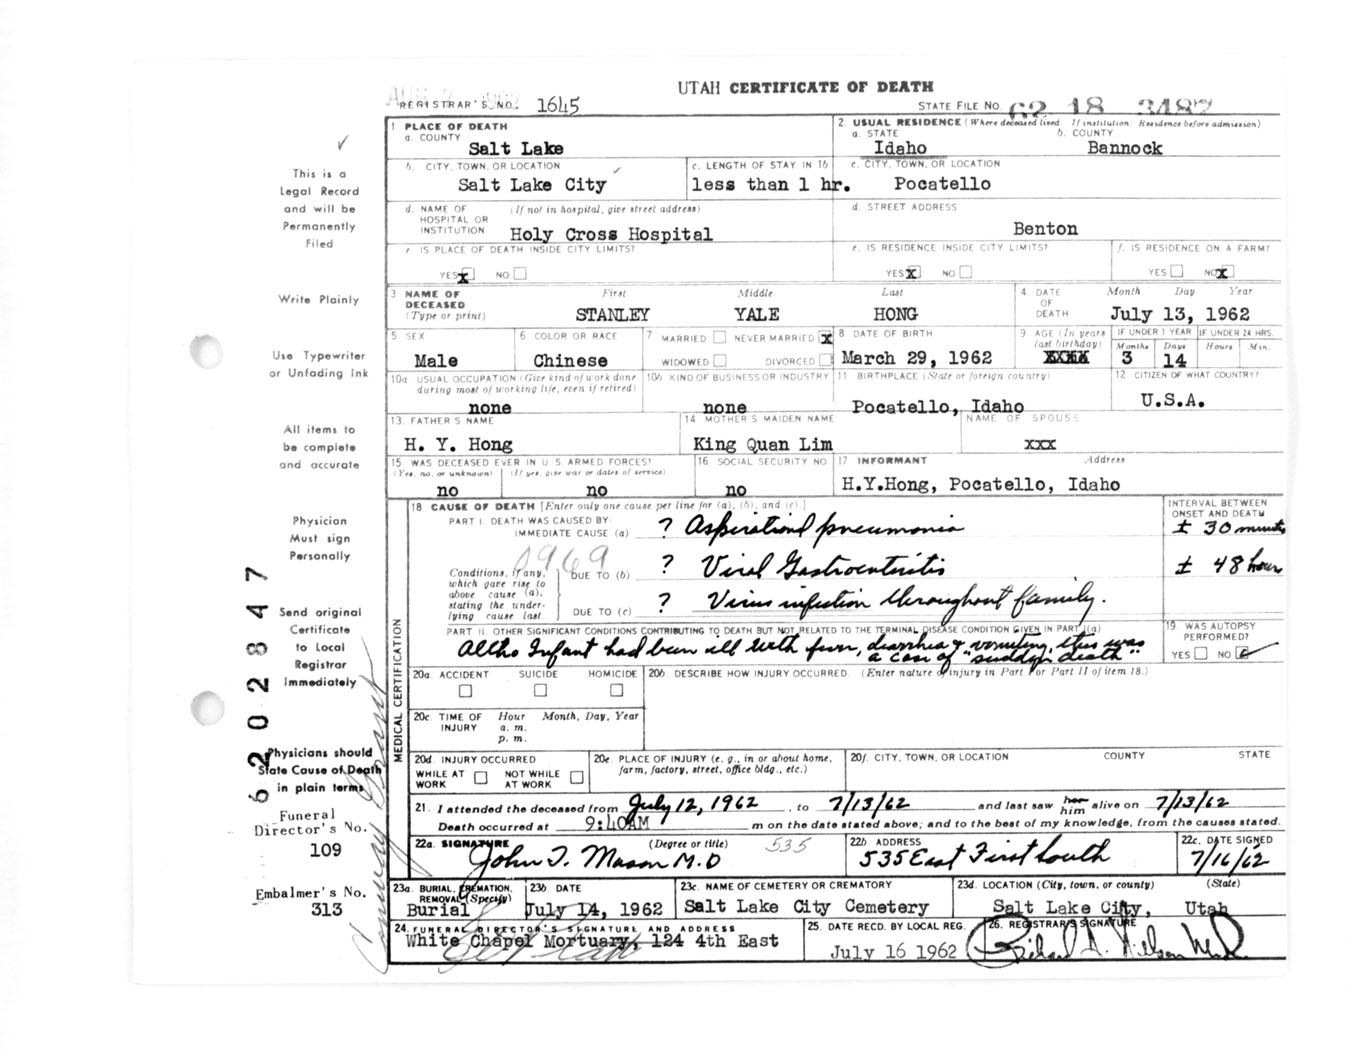 UTAH CERTIFICATE OF DEATH
REGISTRAR'S NO. 1645
STATE FILE NO. 62 18 3487
This is a
Legal Record
and will be
Permanently
Filed
Write Plainly
Use Typewriter
or Unfading Ink
All items to
be complete
and accurate
Physician
Must sign
Personally
Send original
Certificate
to Local
Registrar
Immediately
Physicians should
State Cause of Death
in plain terms
Funeral
Director's No.
109
Embalmer's No.
313
6202847
1. PLACE OF DEATH
a. COUNTY
Salt Lake
2. USUAL RESIDENCE (Where deceased lived. If institution: Residence before admission)
a. STATE b. COUNTY
Idaho Bannock
b. CITY, TOWN, OR LOCATION
Salt Lake City
c. LENGTH OF STAY IN 1b
less than 1 hr.
c. CITY, TOWN, OR LOCATION
Pocatello
d. NAME OF (If not in hospital, give street address)
HOSPITAL OR
INSTITUTION Holy Cross Hospital
d. STREET ADDRESS
Benton
e. IS PLACE OF DEATH INSIDE CITY LIMITS?
YES x NO
e. IS RESIDENCE INSIDE CITY LIMITS?
YES x NO
f. IS RESIDENCE ON A FARM?
YES NO x
3 NAME OF DECEASED (Type or print)
First Middle Last
STANLEY YALE HONG
4. DATE OF DEATH
Month Day Year
July 13, 1962
5 SEX
Male
6 COLOR OR RACE
Chinese
7 MARRIED NEVER MARRIED x
WIDOWED DIVORCED
8 DATE OF BIRTH
March 29, 1962
9 AGE (In years last birthday)
XXXX
IF UNDER 1 YEAR IF UNDER 24 HRS.
Months Days Hours Min.
3 14
10a USUAL OCCUPATION (Give kind of work done
during most of working life, even if retired)
none
10b KIND OF BUSINESS OR INDUSTRY
none
11 BIRTHPLACE (State or foreign country)
Pocatello, Idaho
12 CITIZEN OF WHAT COUNTRY?
U.S.A.
13. FATHER'S NAME
H. Y. Hong
14 MOTHER'S MAIDEN NAME
King Quan Lim
NAME OF SPOUSE
xxx
15 WAS DECEASED EVER IN U.S. ARMED FORCES?
(Yes, no, or unknown) (If yes, give war or dates of service)
no no
16 SOCIAL SECURITY NO
no
17 INFORMANT Address
H.Y.Hong, Pocatello, Idaho
MEDICAL CERTIFICATION
18 CAUSE OF DEATH [Enter only one cause per line for (a), (b), and (c).]
INTERVAL BETWEEN
ONSET AND DEATH
PART I. DEATH WAS CAUSED BY:
IMMEDIATE CAUSE (a) ? Aspirational pneumonia ± 30 minutes
Conditions, if any,
which gave rise to
above cause (a),
stating the under-
lying cause last.
DUE TO (b) ? Viral Gastroenteritis ± 48 hours
DUE TO (c) ? Virus infection throughout family.
PART II. OTHER SIGNIFICANT CONDITIONS CONTRIBUTING TO DEATH BUT NOT RELATED TO THE TERMINAL DISEASE CONDITION GIVEN IN PART I(a)
Altho Infant had been ill with fever, diarrhea & vomiting, this was
a case of "sudden death"
19 WAS AUTOPSY
PERFORMED?
YES NO
20a. ACCIDENT SUICIDE HOMICIDE
20b. DESCRIBE HOW INJURY OCCURRED. (Enter nature of injury in Part I or Part II of item 18.)
20c. TIME OF INJURY Hour Month, Day, Year
a. m.
p. m.
20d. INJURY OCCURRED
WHILE AT WORK NOT WHILE AT WORK
20e. PLACE OF INJURY (e. g., in or about home,
farm, factory, street, office bldg., etc.)
20f. CITY, TOWN, OR LOCATION COUNTY STATE
21. I attended the deceased from July 12, 1962, to 7/13/62 and last saw her him alive on 7/13/62
Death occurred at 9:40AM m on the date stated above; and to the best of my knowledge, from the causes stated.
22a. SIGNATURE (Degree or title) 535
John T. Mason M.D
22b. ADDRESS
535 East First South
22c. DATE SIGNED
7/16/62
23a. BURIAL, CREMATION,
REMOVAL (Specify)
Burial
23b. DATE
July 14, 1962
23c. NAME OF CEMETERY OR CREMATORY
Salt Lake City Cemetery
23d. LOCATION (City, town, or county) (State)
Salt Lake City, Utah
24. FUNERAL DIRECTOR'S SIGNATURE AND ADDRESS
White Chapel Mortuary, 124 4th East
25. DATE RECD. BY LOCAL REG.
July 16 1962
26. REGISTRAR'S SIGNATURE